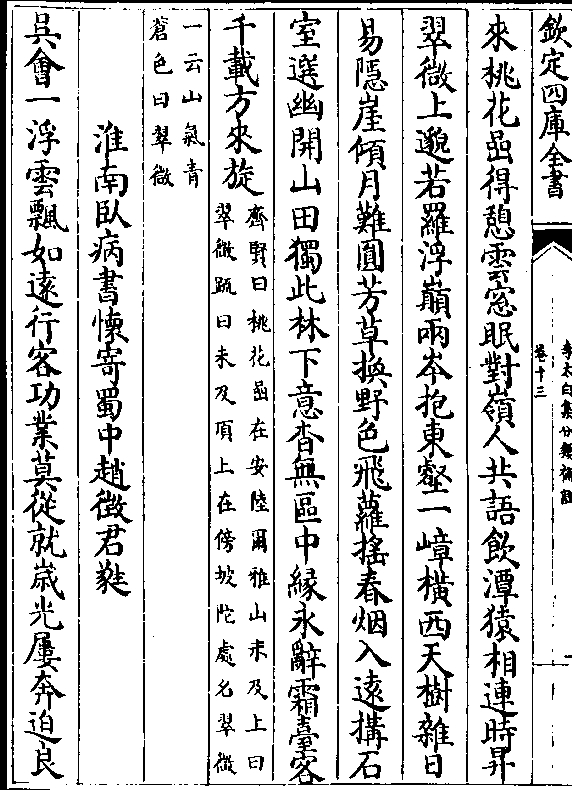 欽定四庫全書
李太白集分類補註
卷十三
來桃花嵓得憩雲窓眠對嶺人共語飲潭猿相連時昇
翠微上邈若羅浮巔兩岑抱東壑一嶂橫西天樹雜日
易隱崖傾月難圓芳草換野色飛蘿搖春烟入遠搆石
室選幽開山田獨此林下意杳無區中緣永辭霜臺客
千載方來旋
齊賢曰桃花嵓在安陸爾雅山未及上曰
翠微疏曰未及頂上在傍坡陀處名翠微
一云山氣青
蒼色曰翠微
淮南臥病書懷寄蜀中趙徵君蕤
吳會一浮雲飄如遠行客功業莫從就嵗光屢奔迫良